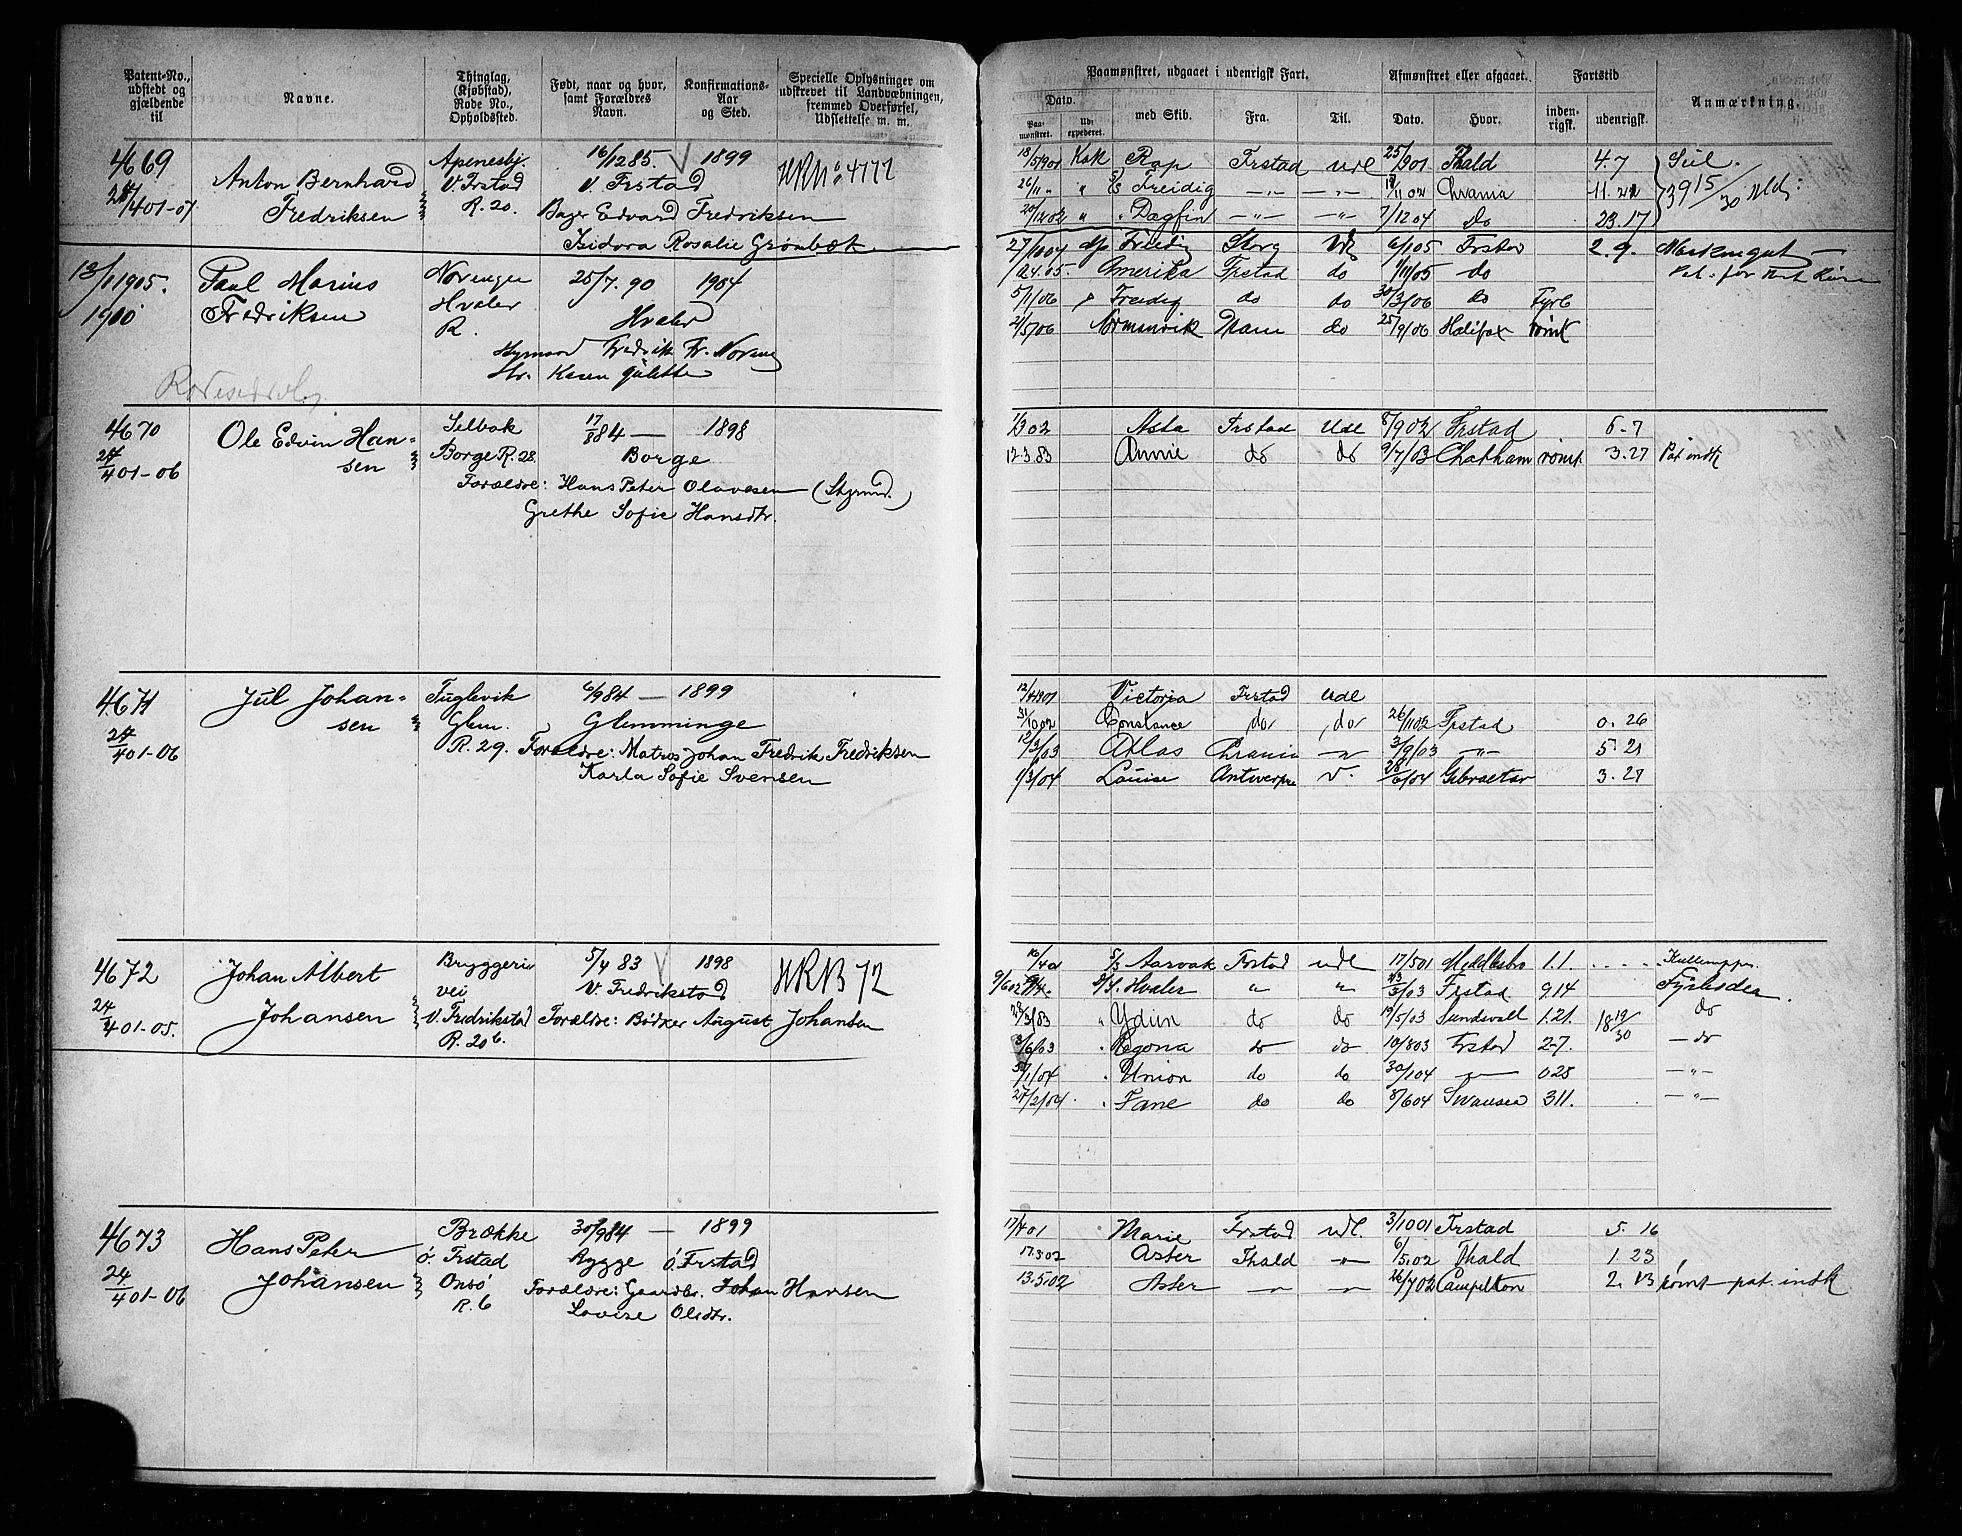 Patent-No., udstedt og gjældende til
Navne.
Thinglag, (Kjøbstad), Rode No., Opholdssted.
Født, naar og hvor, samt Forældres Navn.
Konfirmations-Aar og Sted.
Specielle Oplysninger om udskrevet til Landværbningen, fremmed Overførsel, Udslettelse m. m.
Paamønstret, udgaaet i udenrigsk Fart.
Afmønstret eller afgaaet.
Fartstid
Anmærkning.
Dato.
Paa-mønstret.
Ud-expederet.
med Skib.
Fra.
Til.
Dato.
Hvor.
inden-rigsk.
udenrigsk.
4669
Anton Bernhard Fredriksen
Apenesbj. V. Frstad R. 20.
16/12 85. 1899
V. Frstad
Bager Edvard Fredriksen
Isidora Rosalie Grønbæk
18/5 901 Kok Rap Frstad udl 25/9 01 Fhald 4.7
26/11 " " S/S Freidig —"— —"— 02 Chrania 11.22
20/12 02 " " Dagfin —"— —"— 7/12 04 do 23.17
13/1 1905.
1910
Paul Marius Fredriksen
Norengen Hvaler R.
25/7. 90 1904
Hvaler
Fredrik Fr. Noreng
Karen Julette
27/10 04 Freidig Udl 6/1 05 Frstad 2.9.
Amerika Frstad do 1/11 05 do
5/1 06 Freidig do do 30/3 06 do Fyrb
2/5 06 do 25/9 06 Halifax rømt
4670
24/4 01-06
Ole Edvin Hansen
Selbak Borge R. 28.
17/8 84 — 1898
Borge
Forældre: Hans Peter Olavesen (Styrmd.)
Grethe Sofie Hansdtr.
Asta Frstad Udl 8/9 02 Frstad 6-7
12.3.83 Annie do do 9/7/03 Chatham rømt 3.27 Pat indk
4671
24/4 01-06
Jul Johansen
Fuglevik Glem. R. 29.
6/9 84 — 1899
Glemminge
Forældre: Matros Johan Fredrik Fredriksen
Karla Sofie Svensen
Victoria Frstad Udl
31/10 02 Constance do do 26/11 02 Frstad 0.26
12/3/03 Atlas 3/9/03 —"— 5 21
1/3/04 Louise Antwerpn 28/6/04 Gibraltar 3.27
4672
24/4 01-05.
Johan Albert Johansen
Bryggeri vei V. Fredrikstad R. 20 b.
5/4 83 1898
V. Fredrikstad
Forældre: Bødker August Johansen
HRNB 72
S/S Aarvak Frstad udl 17/5 01 Middlesbro 1.1.
S/S. Hvaler " " 03 Frstad 9 14 Fyrbøder
" Ydun do do 19/5/03 Sundsvall 1.21. 18 19/30 do
3/6/03 do do 10/8 03 Frstad 2-7. — do
Union do do 30/1 04 0 28 —"—
27/2/04 . Fane do do 8/6 04 Swansea 3 11. —"—
4673
24/4 01-06
Hans Peter Johansen
Brække Ø. Frstad Onsø R. 6
30/9 84 — 1899
Rygge Ø. Frstad
Forældre: Gaardbr. Johan Hansen
Lovise Olsdtr.
17/4 01 Marie Frstad udl. 3/10 01 Frstad 5 16
17.3.02 Aster Fhald —"— 6/5.02 Fhald 1. 23
13.5.02 Aster —"— —"— 26/7 02 Campelton 2. 13 rømt — pat. indk